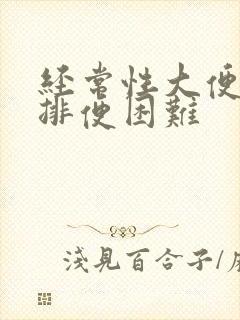 经常性大便
排便困難
淺見百合子/